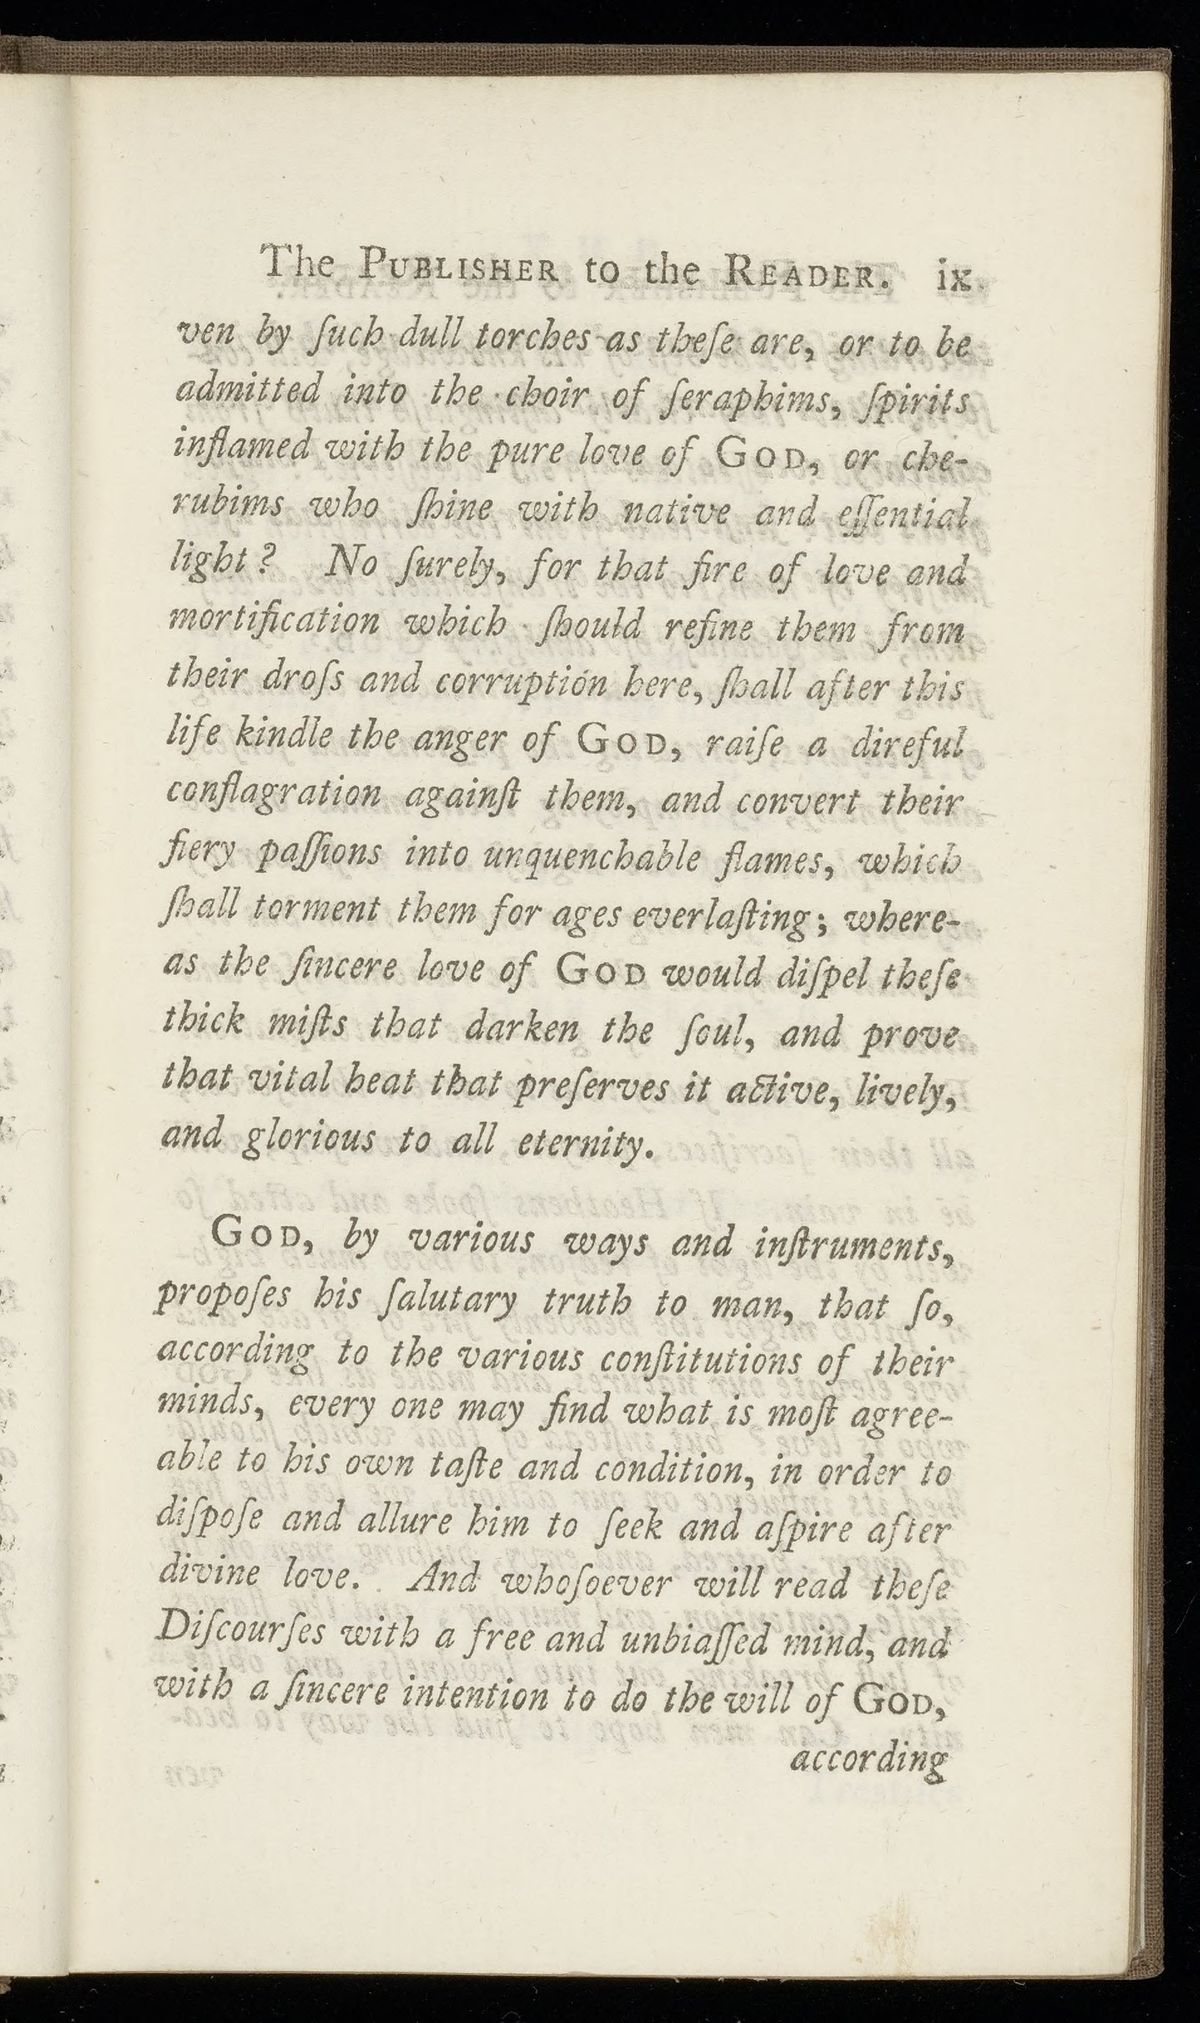 The PUBLISHER to the READER. ix
ven by ſuch dull torches as theſe are, or to be
admitted into the choir of ſeraphims, ſpirits
inflamed with the pure love of GOD, or che-
rubims who ſhine with native and eſſential
light? No ſurely, for that fire of love and
mortification which ſhould refine them from
their droſs and corruption here, ſhall after this
life kindle the anger of GOD, raiſe a direful
conflagration againſt them, and convert their
fiery paſſions into unquenchable flames, which
ſhall torment them for ages everlaſting; where-
as the ſincere love of GOD would diſpel theſe
thick miſts that darken the ſoul, and prove
that vital heat that preſerves it active, lively,
and glorious to all eternity.
GOD, by various ways and inſtruments,
propoſes his ſalutary truth to man, that ſo,
according to the various conſtitutions of their
minds, every one may find what is moſt agree-
able to his own taſte and condition, in order to
diſpoſe and allure him to ſeek and aſpire after
divine love. And whoſoever will read theſe
Diſcourſes with a free and unbiaſſed mind, and
with a ſincere intention to do the will of GOD,
according